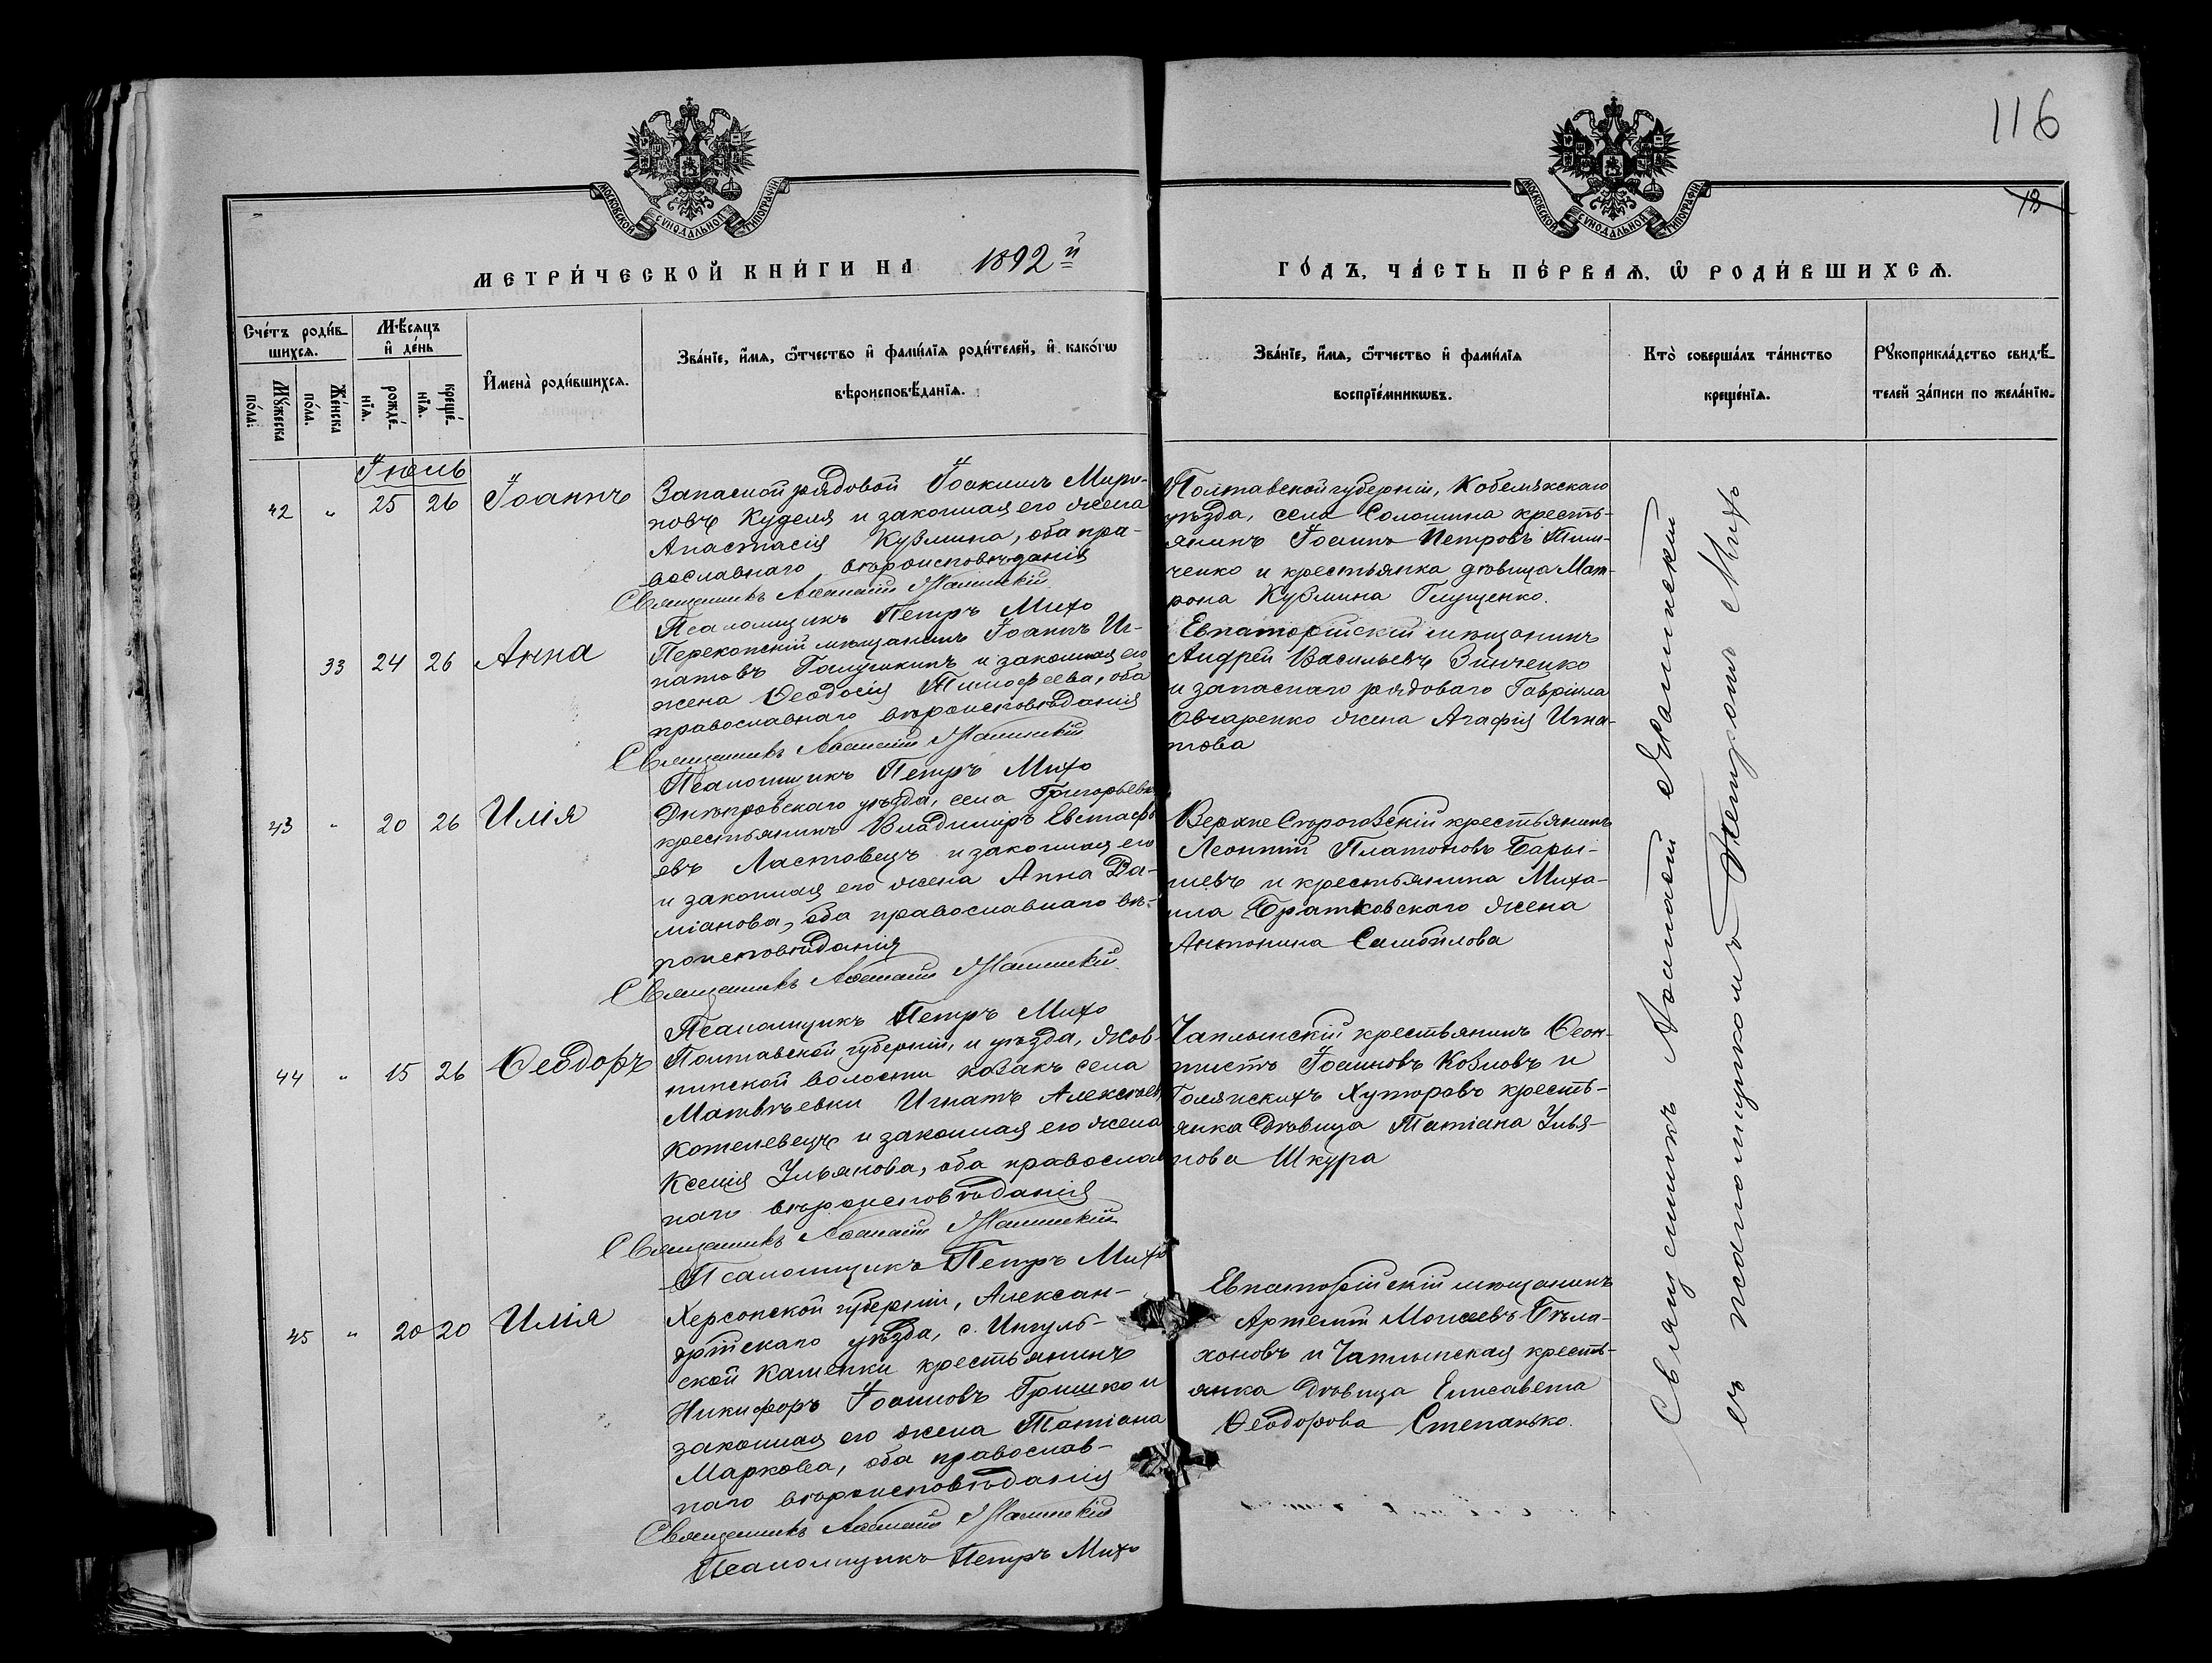 116
13
МОСКОВСКОЙ СѴНОДАЛЬНОЙ ТИПОГРАФІИ
МОСКОВСКОЙ СѴНОДАЛЬНОЙ ТИПОГРАФІИ
МЕТРИ́ЧЕСКОЙ КНИ́ГИ НА 1892й
ГО́ДЪ, ЧА́СТЬ ПЕ́РВАѦ, Ѽ РОДИ́ВШИХСѦ.
Сче́тъ роди́в-
шихсѧ.
Мꙋ́жеска по́ла.
Же́нска по́ла.
Мѣ́сѧцъ
и҆ де́нь
рожде́-
нїѧ.
креще́-
нїѧ.
И҆мена̀ роди́вшихсѧ.
Зва́нїе, и҆́мѧ, ѻ҆́тчество и҆ фами́лїѧ роди́телей, и҆ како́гѡ
вѣроисповѣ́данїѧ.
Зва́нїе, и҆́мѧ, ѻ҆́тчество и҆ фами́лїѧ
воспрїе́мникѡвъ.
Кто̀ соверша́лъ та́инство
креще́нїѧ.
Рꙋкоприкла́дство свидѣ́-
телей за́писи по жела́нїю.
Іюль
42 " 25 26 Іоаннъ
Запасной рядовой Іоакимъ Миро-
новъ Куделя и законная его жена
Анастасія Кузмина, оба пра-
вославнаго вѣроисповѣданія
Священникъ Аѳанасій
Псаломщикъ Петръ Михо
Полтавской губерніи, Кобелякскаго
уѣзда, села Солошина кресть-
янинъ Іоаннъ Петровъ Тим-
ченко и крестьянка дѣвица Мат-
рона Кузмина Глущенко.
33 24 26 Анна
Перекопскій мѣщанинъ Іоаннъ Иг-
натовъ Галушкинъ и законная его
жена Ѳеодосія Тимоѳеева, оба
православнаго вѣроисповѣданія
Священникъ Аѳанасій
Псаломщикъ Петръ Михо
Евпаторійскій мѣщанинъ
Андрей Васильевъ Зинченко
и запаснаго рядоваго Гавріила
Овчаренко жена Агафія Игна-
това
43 " 20 26 Илія
Днѣпровскаго уѣзда, села Григорьевки
крестьянинъ Владимиръ Евстафі-
евъ Ластовецъ и законная его
и законная его жена Анна Да-
міанова, оба православнаго вѣ-
роисповѣданія
Священникъ Аѳанасій
Псаломщикъ Петръ Михо
Верхне Сѣрогозскій крестьянинъ
Леонтій Платоновъ Бары-
шевъ и крестьянина Миха-
ила Братковскаго жена
Антонина Самойлова
44 " 15 26 Ѳеодоръ
Полтавской губерніи, и уѣзда, Яков-
нинской волости козакъ села
Матвѣевки Игнатъ Алексѣевъ
Котелевецъ и законная его жена
Ксенія Ульянова, оба православ
наго вѣроисповѣданія
Священникъ Аѳанасій
Псаломщикъ Петръ Михо
Чаплынскій крестьянинъ Ѳеок-
тистъ Іоанновъ Козловъ и
Хуторовъ кресть-
янка дѣвица Татіана Улья-
нова Шкура
45 " 20 20 Илія
Херсонской губерніи, Алексан-
дрійскаго уѣзда, с. Ингуль-
ской Каменки крестьянинъ
Никифоръ Іоанновъ Гришко и
законная его жена Татіана
Маркова, оба православ-
наго вѣроисповѣданія
Священникъ Аѳанасій
Псаломщикъ Петръ Михо
Евпаторійскій мѣщанинъ
Артемій Моисеевъ Бѣла-
хоновъ и Чаплынская кресть-
янка дѣвица Елисавета
Ѳеодорова Степанько.
Священникъ Аѳанасій
съ псаломщикомъ Петромъ Михо